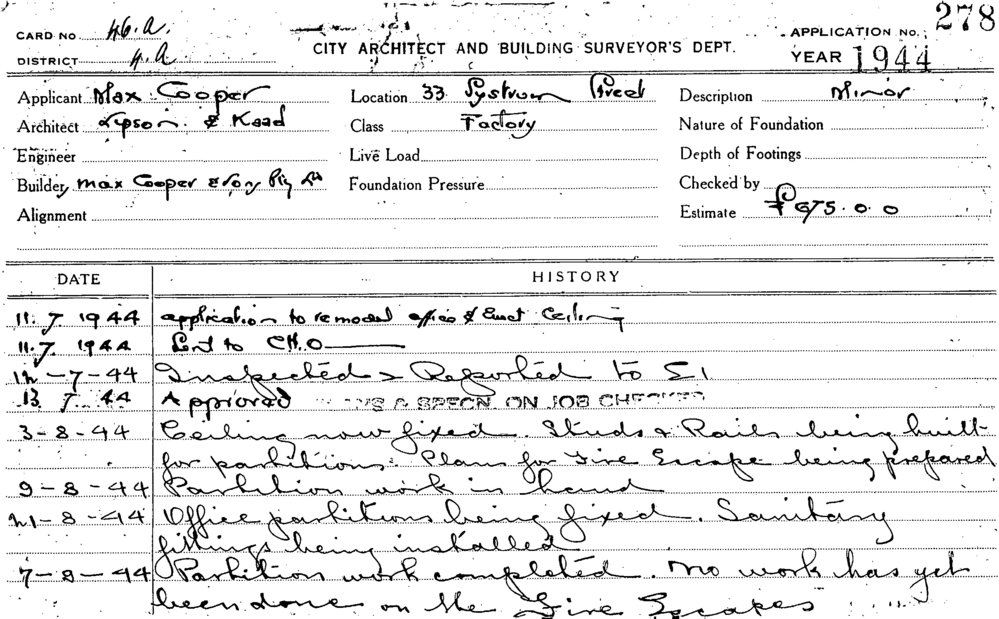 278
CARD NO 46.A.
APPLICATION NO.
CITY ARCHITECT AND BUILDING SURVEYOR'S DEPT.
DISTRICT 4.A
YEAR 1944
Applicant Max Cooper Location 33 Street Description Minor
Architect Lipson & Kaad Class Factory Nature of Foundation
Engineer Live Load Depth of Footings
Builder Max Cooper & Son Pty Ld Foundation Pressure Checked by
Alignment Estimate £675.0.0
DATE HISTORY
11.7.1944 application to remodel office & Erect Ceiling
11.7.1944 Sent to C.H.O
12-7-44 Inspected & Reported to
13.7.44 Approved PLANS & SPECN. ON JOB CHECKED
3-8-44 Ceiling now fixed. Studs & Rails being built
for partitions. Plans for Fire Escape being prepared
9-8-44 Partition work in hand
21-8-44 Office partitions being fixed. Sanitary
fittings being installed
7-8-44 Partition work completed. No work has yet
been done on the Fire Escapes